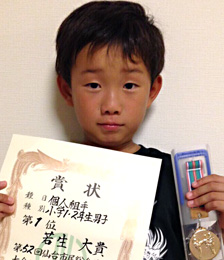 賞状
種目 個人組手
種別 小学1・2年生男子
第1位
若生 大賞
第52回仙台市民